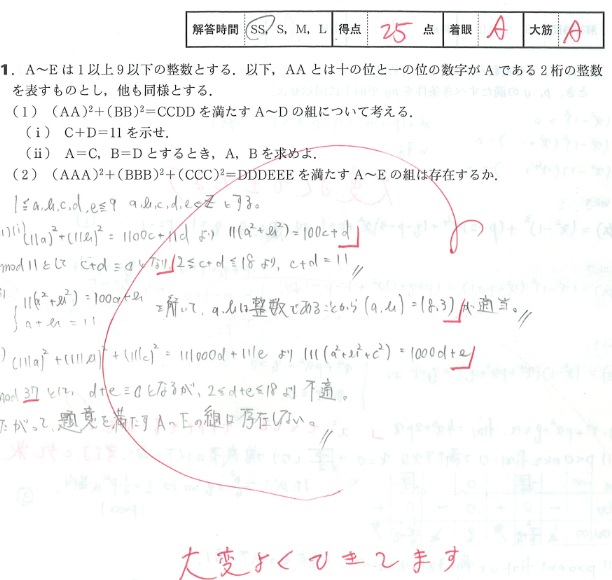 解答時間 SS, S, M, L 得点 25 点 着眼 A 大筋 A
1. A〜Eは1以上9以下の整数とする.以下,AAとは十の位と一の位の数字がAである2桁の整数
を表すものとし,他も同様とする.
(1) (AA)²+(BB)²=CCDDを満たすA〜Dの組について考える.
(i) C+D=11を示せ.
(ii) A=C,B=Dとするとき,A,Bを求めよ.
(2) (AAA)²+(BBB)²+(CCC)²=DDDEEEを満たすA〜Eの組は存在するか.
1≦a,b,c,d,e≦9 a,b,c,d,e∈Z とする。
(1)(i) (11a)²+(11b)²=1100c+11d より 11(a²+b²)=100c+d
mod 11として c+d≡0となり 2≦c+d≦18より, c+d=11
11(a²+b²)=100a+b
a+b=11
を解いて, a,bは整数であることから (a,b)=(8,3)が適当。
) (111a)²+(111b)²+(111c)²=111000d+111e より 111(a²+b²+c²)=1000d+e
mod 37として, d+e≡0となるが, 2≦d+e≦18より不適。
たがって, 題意を満たすA〜Eの組は存在しない。
大変よくできてます